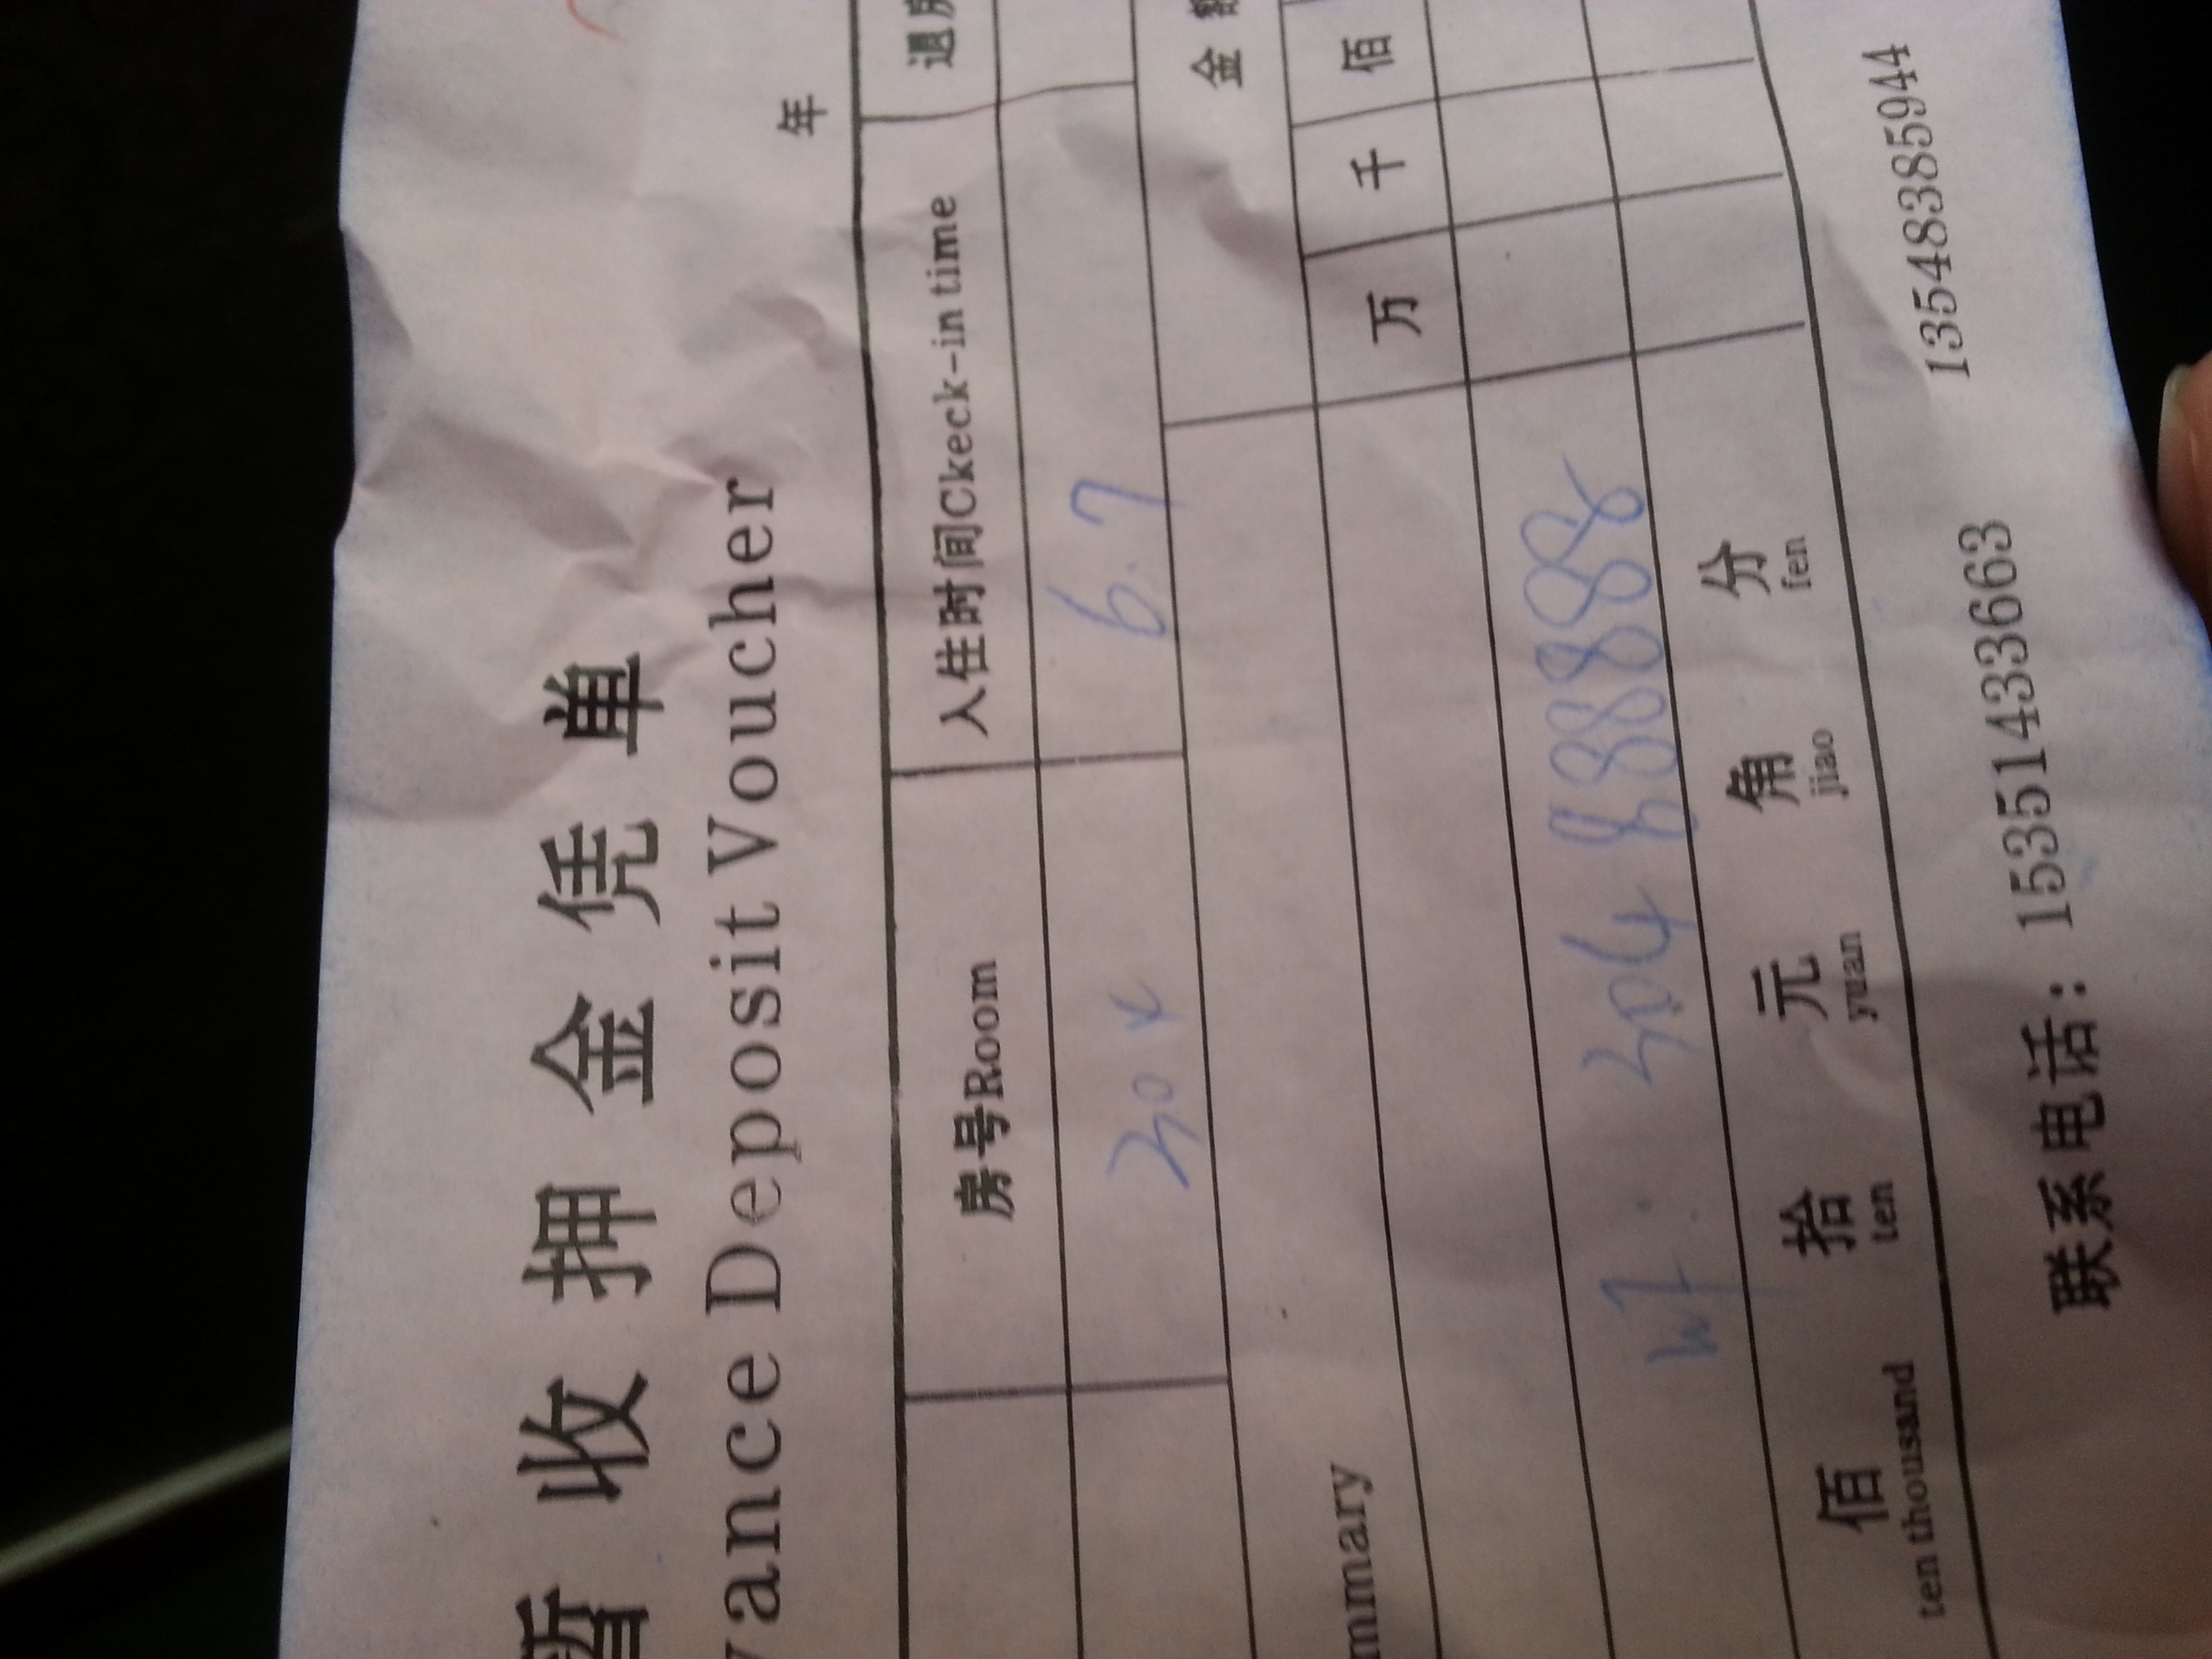 暂收押金凭单
vance Deposit Voucher
年
房号Room 入住时间Ckeck-in time 退房
304 6.7
mmary 金额
万 千 佰
wf: 304 888888
佰 拾 元 角 分
ten thousand ten yuan jiao fen
联系电话: 15351433663 13548385944